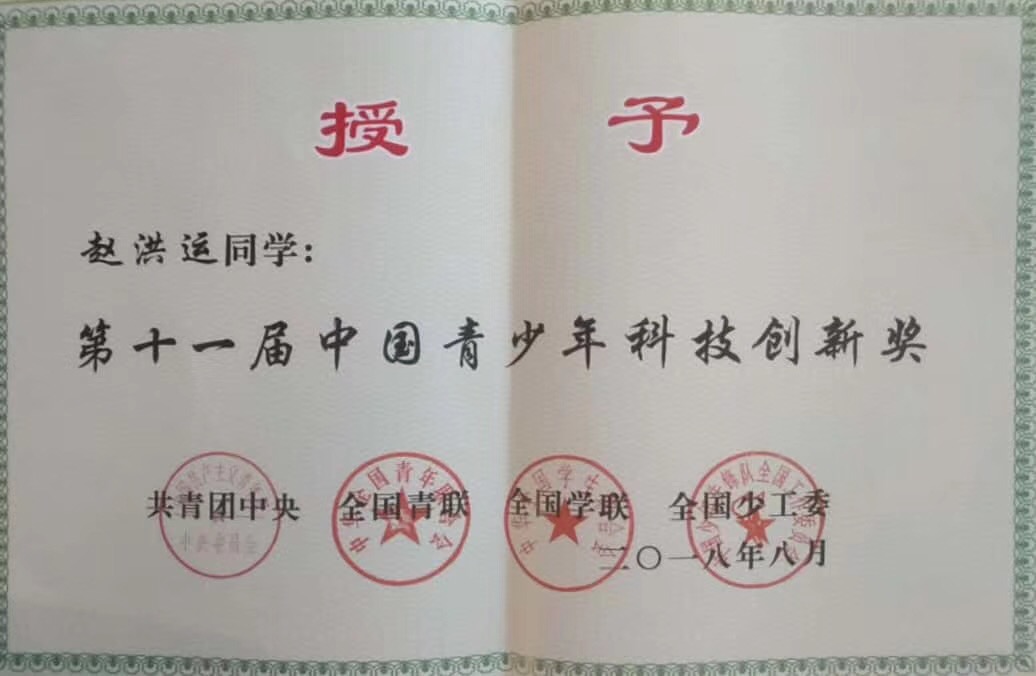 授予
赵洪运同学:
第十一届中国青少年科技创新奖
共青团中央 全国青联 全国学联 全国少工委
二〇一八年八月